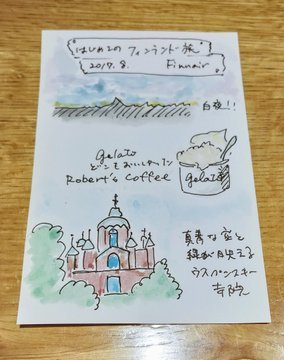 はじめての フィンランド旅
2017.8. Finnair
白夜!!
Gelato
どこもおいしかった
Robert's Coffee
Gelato
真青な空と
緑が映える
ウスペンスキー
寺院